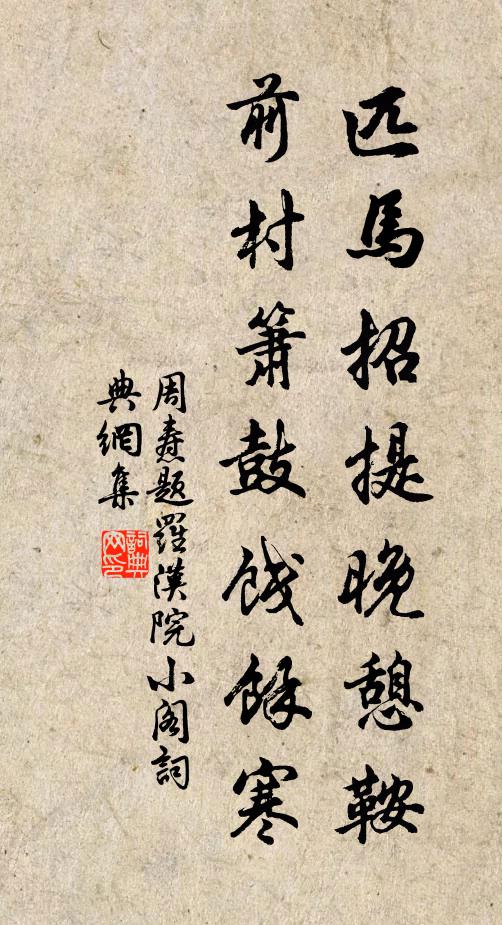 匹馬招提晚憩鞍
前村簫鼓餞餘寒
周燾題羅漢院小閣詞
典網集
詞典網印